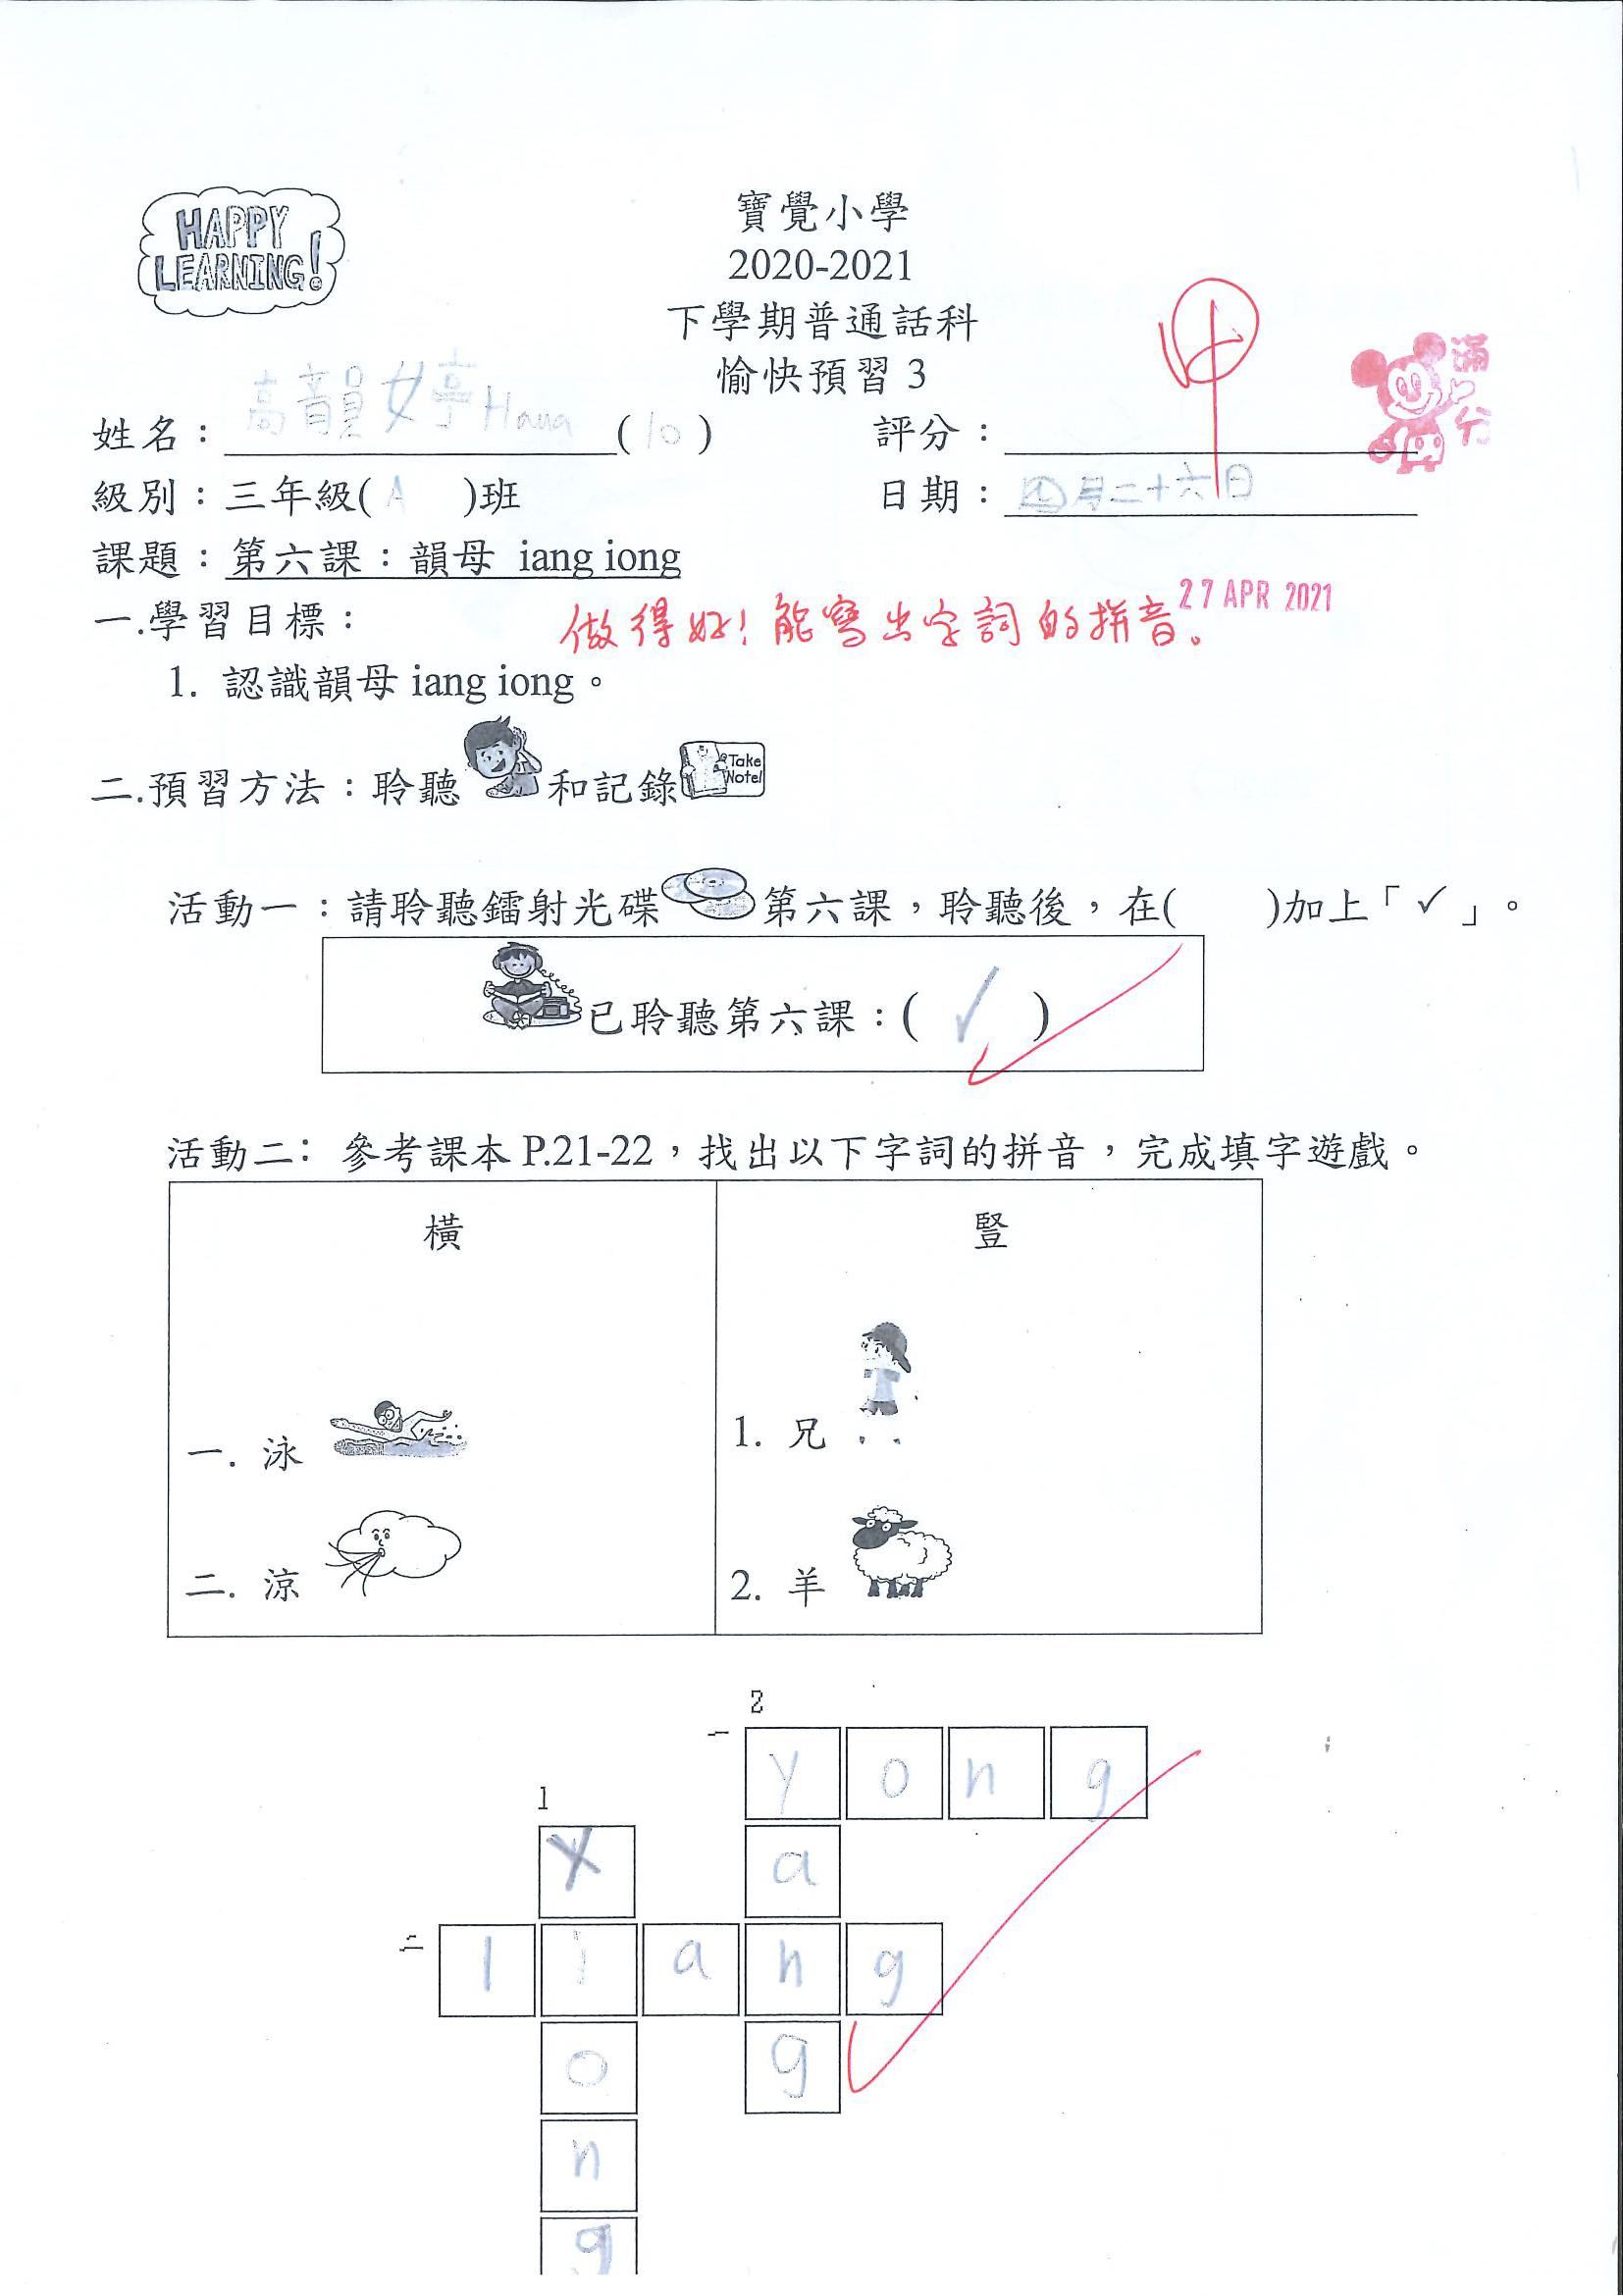 HAPPY
LEARNING!
寶覺小學
2020-2021
下學期普通話科
愉快預習 3
滿分
姓名：高韻婷 Hana ( 10 )
評分：甲
級別：三年級( A )班
日期：四月二十六日
課題：第六課：韻母 iang iong
27 APR 2021
一.學習目標：
做得好！能寫出字詞的拼音。
1. 認識韻母 iang iong。
二.預習方法：聆聽和記錄
Take
Note!
活動一：請聆聽鐳射光碟第六課，聆聽後，在( )加上「✓」。
已聆聽第六課：( ✓ )
活動二：參考課本 P.21-22，找出以下字詞的拼音，完成填字遊戲。
橫
豎
一. 泳
1. 兄
二. 涼
2. 羊
2
一 y o n g
1
x a
二 l i a n g
o g
n
g